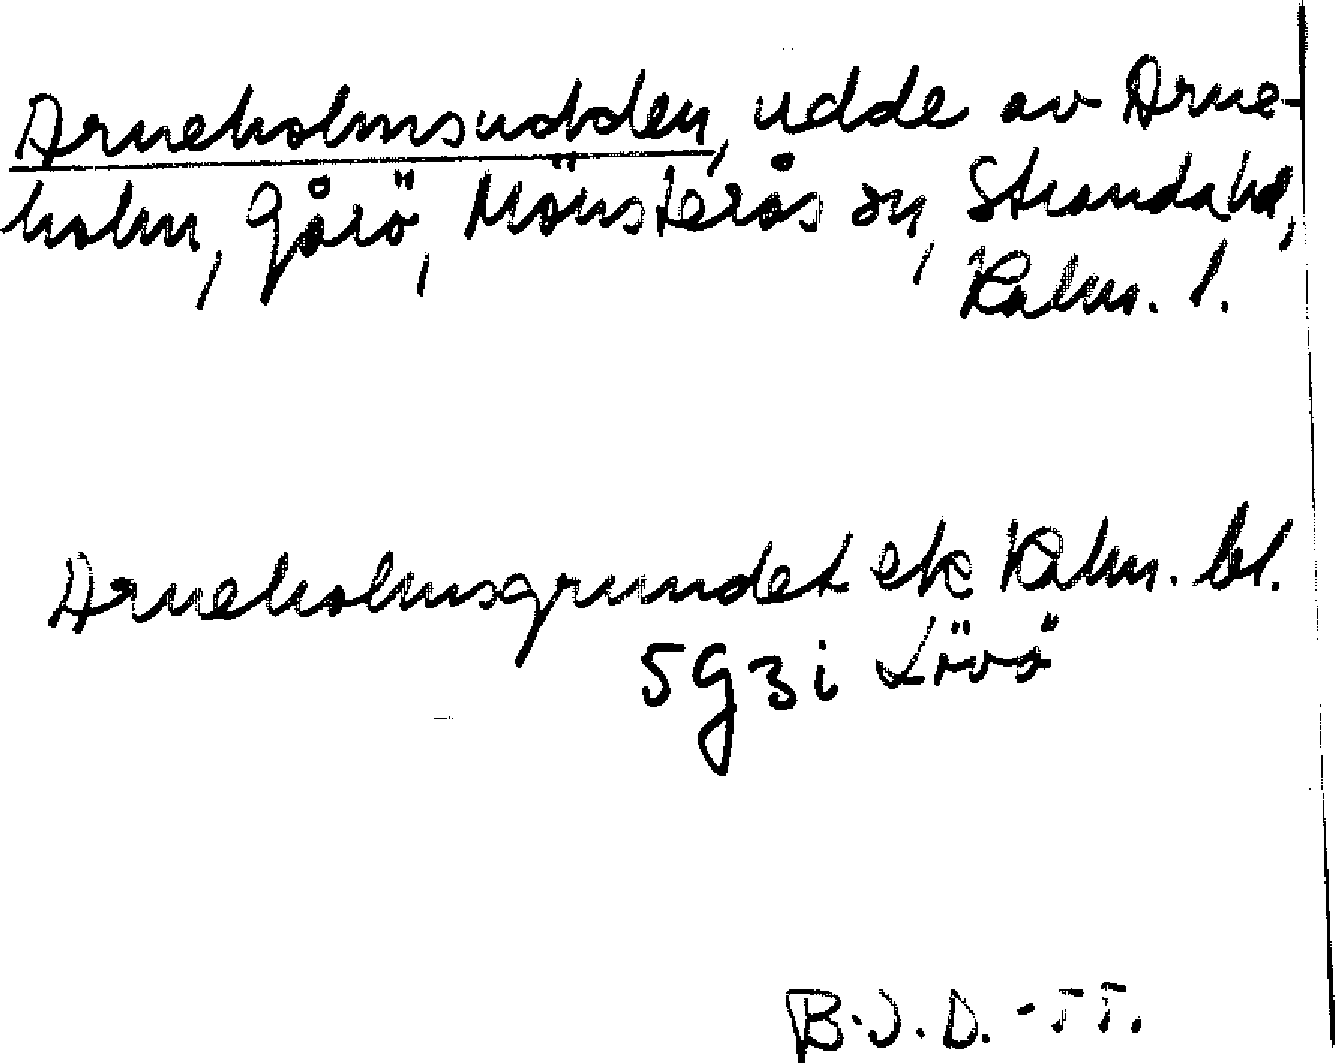 Arneholmsudden, udde av Arne-
holm, Gårö, Mönsterås sn, Stranda hd,
Kalm. l.
Arneholmsgrundet ek Kalm. bl.
5 g 3 i Lövö
B.J.D. - 55.